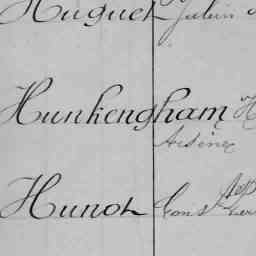 Huguet Julien
Hunkengham H
Arsène
Hunot Const